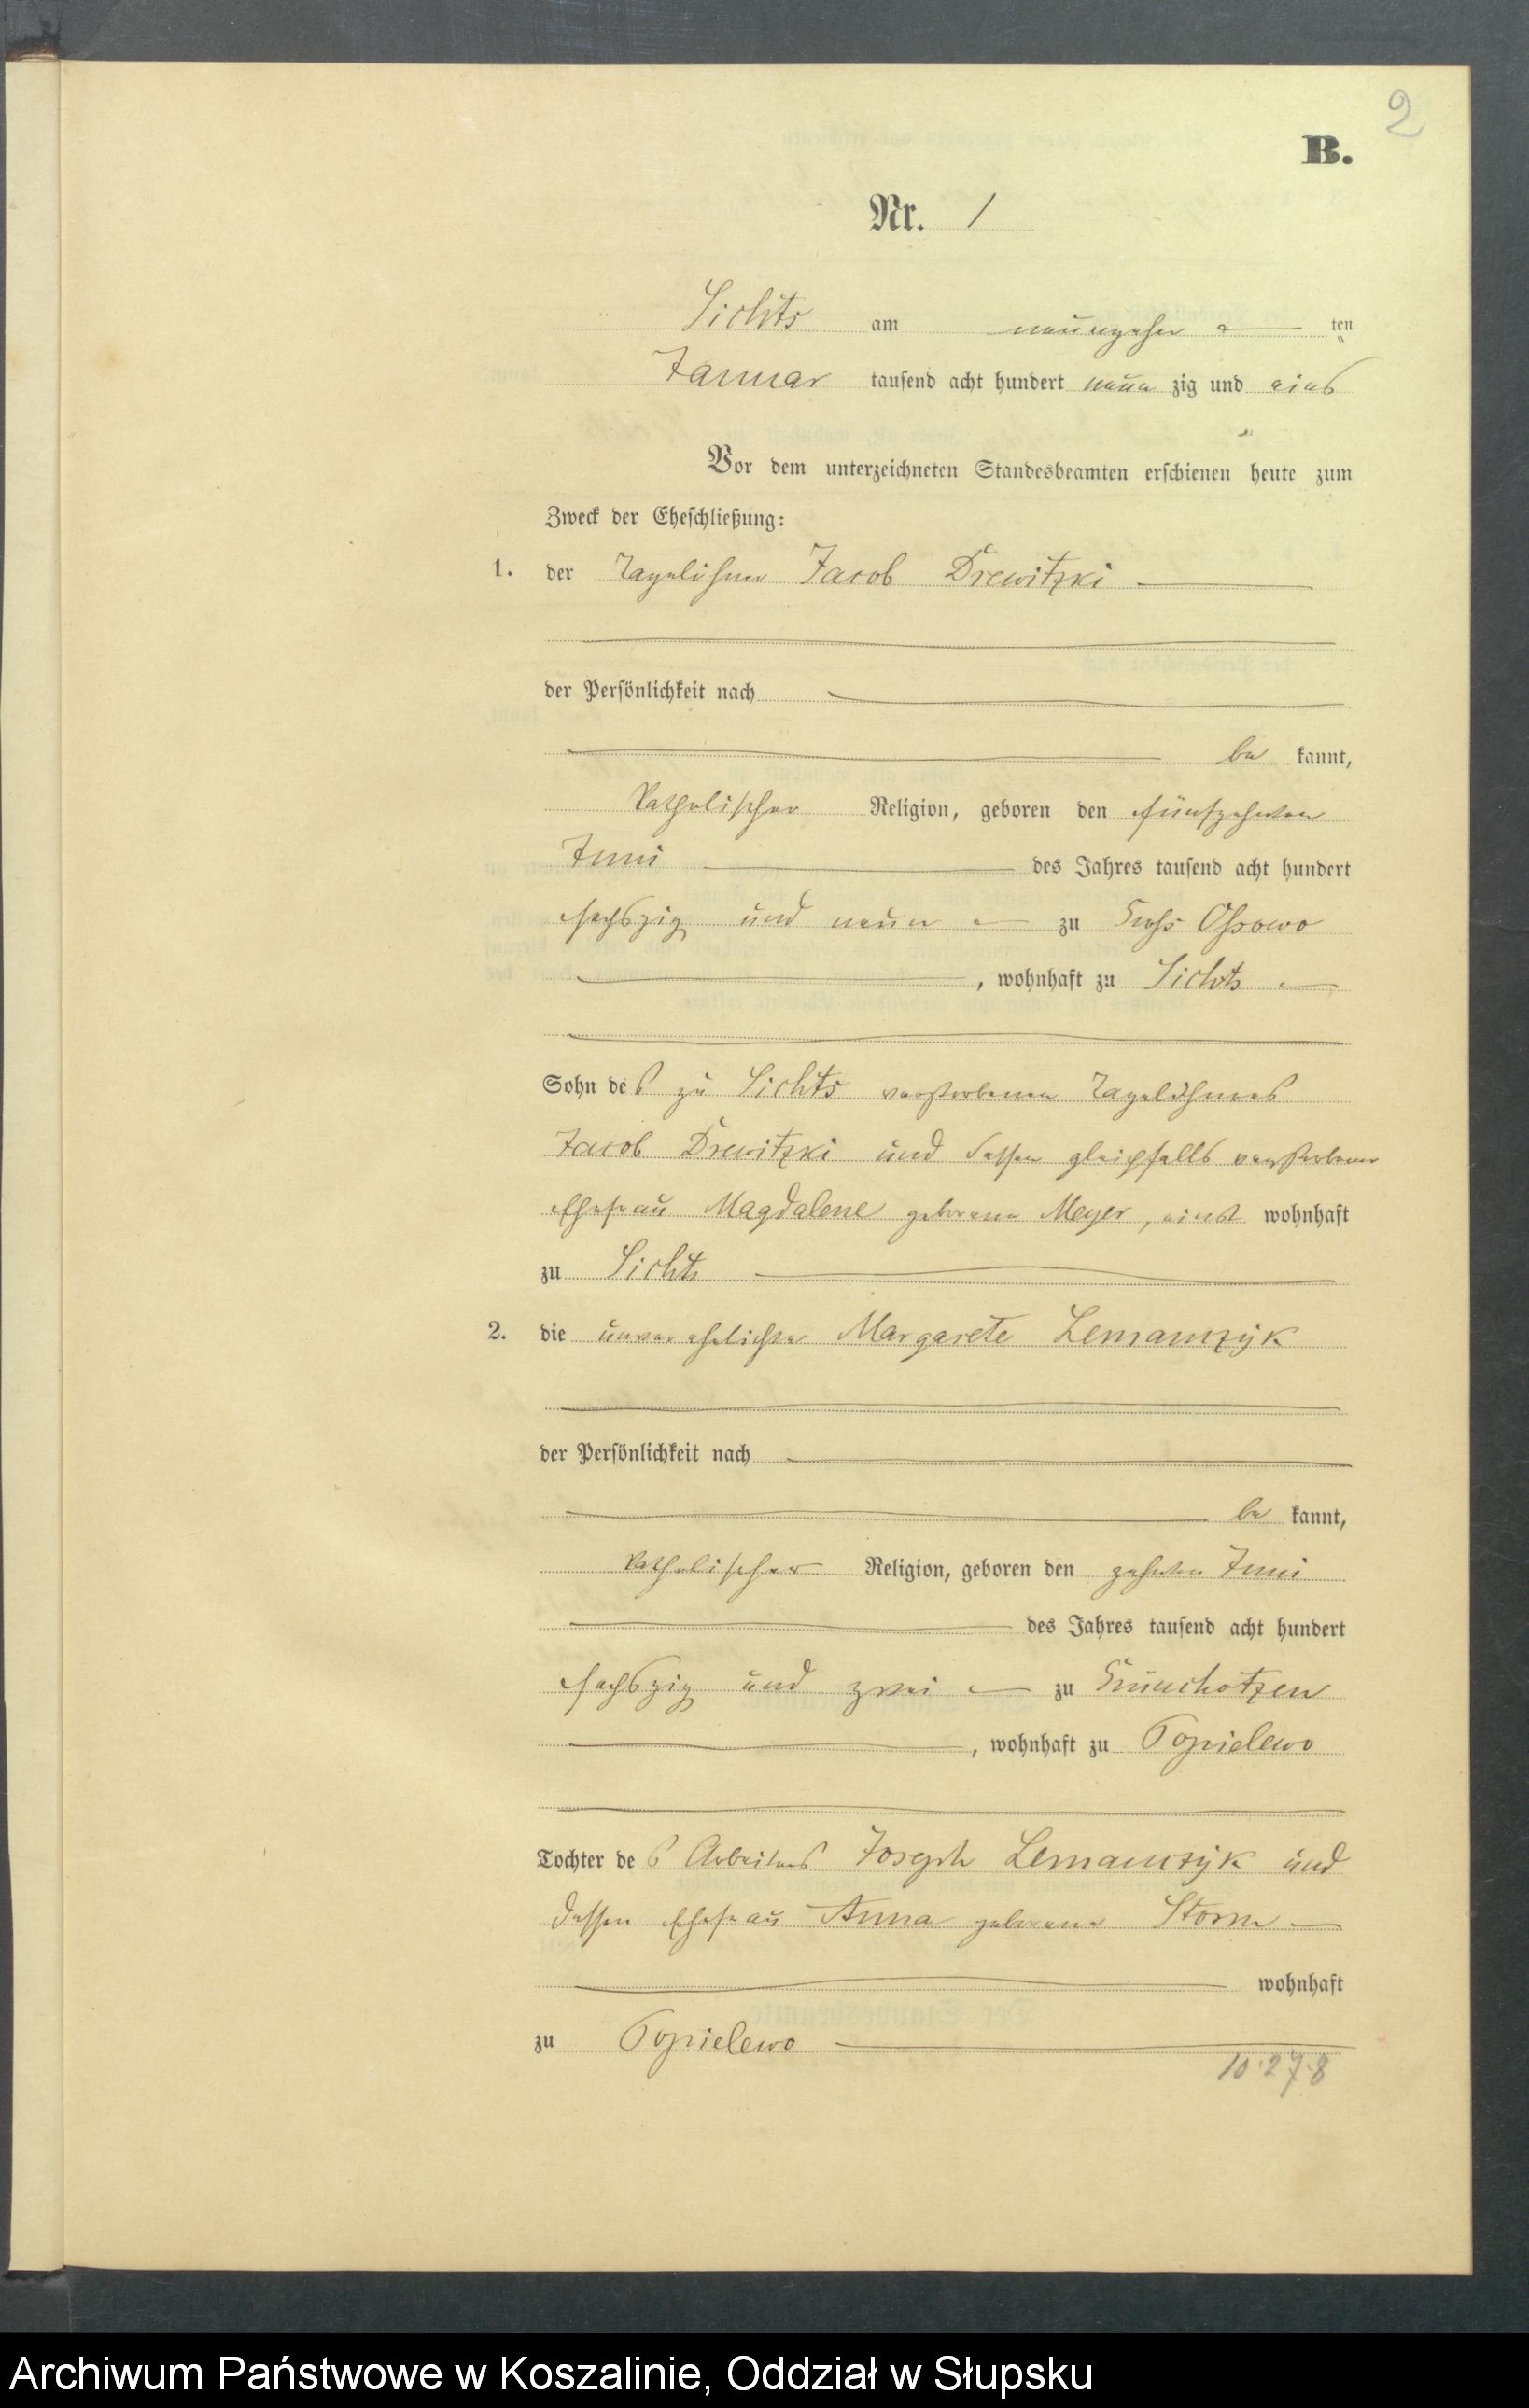 2
B.
Nr. 1
Sichts am neunzehn ten
Januar tausend acht hundert neun zig und eins
Vor dem unterzeichneten Standesbeamten erschienen heute zum
Zweck der Eheschließung:
1. der Tagelöhner Jacob Drewitzki
der Persönlichkeit nach
be kannt,
katholischer Religion, geboren den fünfzehnten
Juni des Jahres tausend acht hundert
sechszig und neun zu Gross Ossowo
, wohnhaft zu Sichts
Sohn des zu Sichts verstorbenen Tagelöhners
Jacob Drewitzki und dessen gleichfalls verstorbener
Ehefrau Magdalene geborene Meyer, einst wohnhaft
zu Sichts
2. die unverehelichte Margarete Lemanczyk
der Persönlichkeit nach
be kannt,
katholischer Religion, geboren den zehnten Juni
des Jahres tausend acht hundert
sechszig und zwei zu Grünchotzen
, wohnhaft zu Popielewo
Tochter des Arbeiters Joseph Lemanczyk und
dessen Ehefrau Anna geborene Storm
wohnhaft
zu Popielewo
10.27.8
Archiwum Państwowe w Koszalinie, Oddział w Słupsku